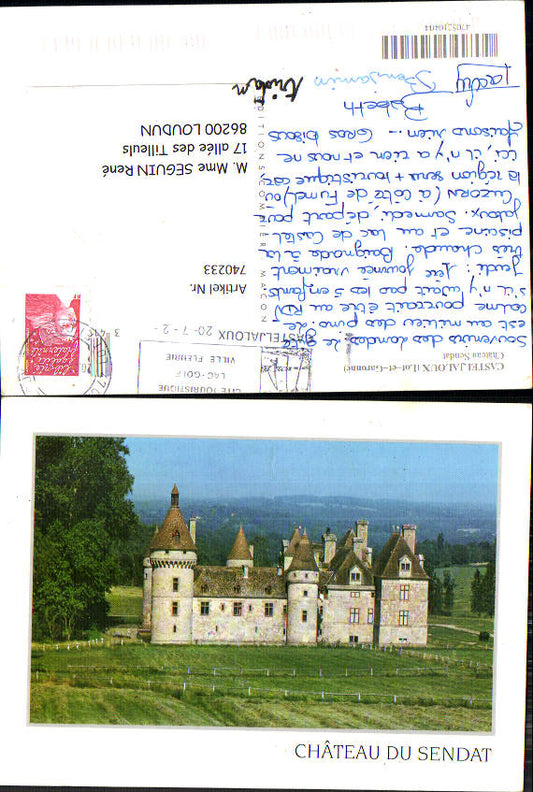 CASTELJALOUX (Lot-et-Garonne)
Château Sendat
Souvenirs des Landes. Le gîte
est au milieu des pins. Le
calme pourrait être au RDV
s'il n'y avait pas les 5 enfants.
Jeudi : 1ère journée vraiment
très chaude. Baignade à la
piscine et au lac de Castel
jaloux. Samedi, départ pour
CUZORN (à côté de Fumel) où
la région sera + touristique car,
ici, il n'y a rien et nous ne
faisons rien... Gros bisous
Babeth
Benjamin
Tristan
EDITIONS COMBIER MACON
CITE TOURISTIQUE
LAC - GOLF
VILLE FLEURIE
CASTELJALOUX 20-7-2
Liberté
Egalité
Fraternité
Artikel Nr.
740233
M. Mme SEGUIN René
17 allée des Tilleuls
86200 LOUDUN
CHÂTEAU DU SENDAT